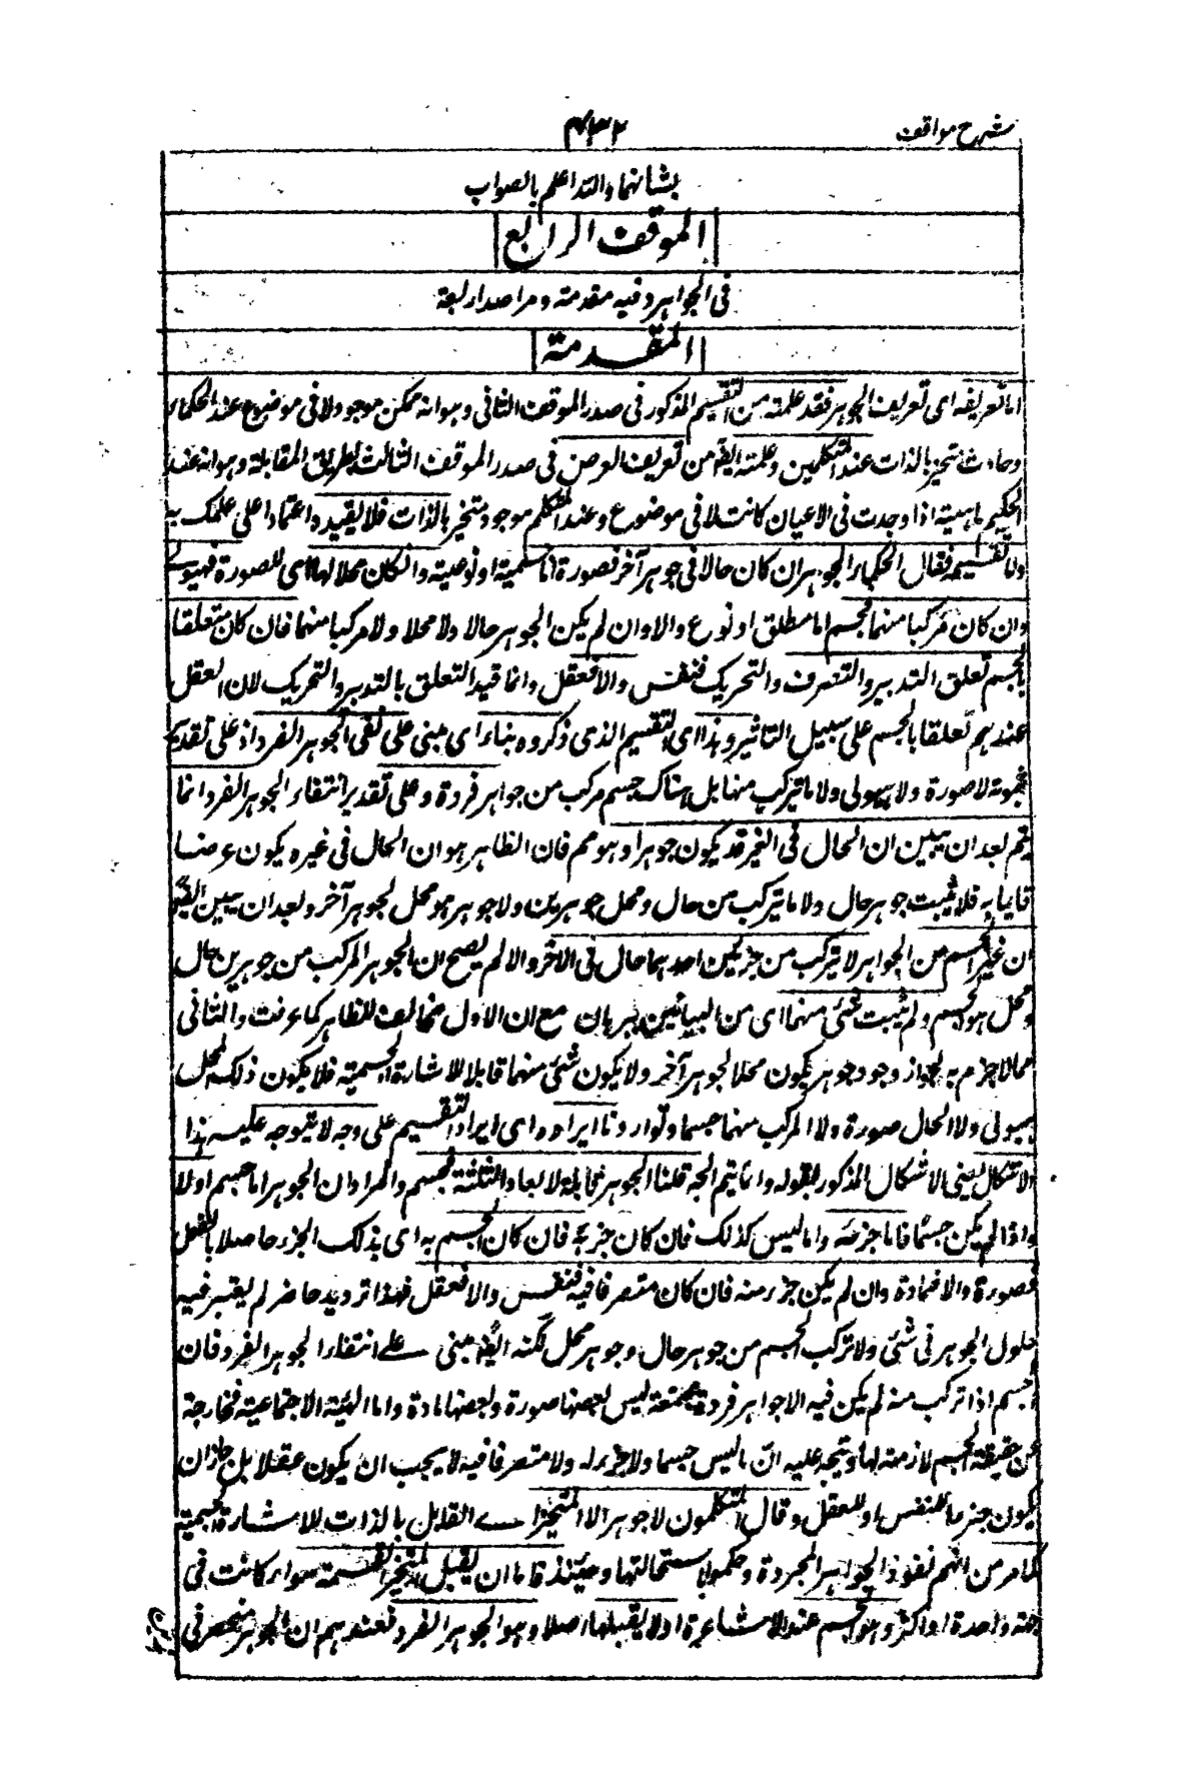 شرح مواقف
۴۳۲
بشانهما والله اعلم بالصواب
الموقف الرابع
فى الجواهر وفيه مقدمة ومراصد اربعة
المقدمة
اما تعريفه اى تعريف الجوهر فقد علمته من التقسيم المذكور فى صدر الموقف الثانى وهو انه ممكن موجود لا فى موضوع عند الحكماء
وحادث متحيز بالذات عند المتكلمين وعلمته ايضا من تعريف العرض فى صدر الموقف الثالث بطريق المقابلة وهو انه عند
الحكيم ماهية اذا وجدت فى الاعيان كانت لا فى موضوع وعند المتكلم موجود متحيز بالذات فلا نعيده اعتمادا على علمك به
واما تقسيمه فقال الحكماء الجوهر ان كان حالا فى جوهر آخر فصورة اما جسمية او نوعية وان كان محلا لها اى للصورة فهيولى
وان كان مركبا منهما فجسم اما مطلق او نوع والا وان لم يكن الجوهر حالا ولا محلا ولا مركبا منهما فان كان متعلقا
بالجسم تعلق التدبير والتصرف والتحريك فنفس والا فعقل وانما قيد التعلق بالتدبير والتحريك لان العقل
عندهم تعلقا بالجسم على سبيل التاثير وهذا اى التقسيم الذى ذكروه بناء اى مبنى على نفى الجوهر الفرد اذ على تقدير
ثبوته لا صورة ولا هيولى ولا ما تركب منهما بل هناك جسم مركب من جواهر فردة وعلى تقدير انتفاء الجوهر الفرد انما
يتم بعد ان يبين ان الحال فى الغير قد يكون جوهرا وهو مم فان الظاهر هو ان الحال فى غيره يكون عرضا
قايما به فلا يثبت جوهر حال ولا ما تركب من حال ومحل جوهرين ولا جوهر هو محل لجوهر آخر وبعد ان يبين ايضا
ان غير الجسم من الجواهر لا يتركب من جزئين احدهما حال فى الآخر والا لم يصح ان الجوهر المركب من جوهرين حال
ومحل هو الجسم ولم يثبت شئ منهما اى من البيانين ببرهان مع ان الاول مخالف للظاهر كما عرفت والثانى
مما لا جزم به لجواز وجود جوهر يكون محلا لجوهر آخر ولا يكون شئ منهما قابلا للاشارة الحسية فلا يكون ذلك المحل
هيولى ولا الحال صورة ولا المركب منهما جسما ولو اردنا ايراده اى ايراد التقسيم على وجه لا يتوجه عليه هذا
الاشكال يعنى الاشكال المذكور بقوله وانما يتم الخ قلنا الجوهر ماله الابعاد الثلثة فجسم والمراد ان الجوهر اما جسم او لا
واذا لم يكن جسما فاما جزئه واما ليس كذلك فان كان جزئه فان كان الجسم به اى بذلك الجزء حاصلا بالفعل
فصورة والا فمادة وان لم يكن جزء منه فان كان متصرفا فيه فنفس والا فعقل فهذا ترديد حاصر لم يعتبر فيه
حلول الجوهر فى شئ ولا تركب الجسم من جوهر حال وجوهر محل لكنه ايضا مبنى على انتفاء الجوهر الفرد فان
الجسم اذا تركب منه لم يكن فيه الا جواهر فردة مجتمعة ليس بعضها صورة وبعضها مادة واما الهيئة الاجتماعية فخارجة
عن حقيقة الجسم لازمة لها ويتجه عليه ان ما ليس جسما ولا جزء له ولا متصرفا فيه لا يجب ان يكون عقلا بل جاز ان
يكون جزءا للنفس او للعقل وقال المتكلمون لا جوهر الا المتحيز اى القابل بالذات للاشارة الحسية
لما مر من انهم نفوا الجواهر المجردة وحكموا باستحالتها وحينئذ فاما ان يقبل المتحيز القسمة سواء كانت فى
جهة واحدة او اكثر وهو الجسم عند الاشاعرة او لا يقبلها اصلا وهو الجوهر الفرد فعندهم ان الجوهر منحصر فى